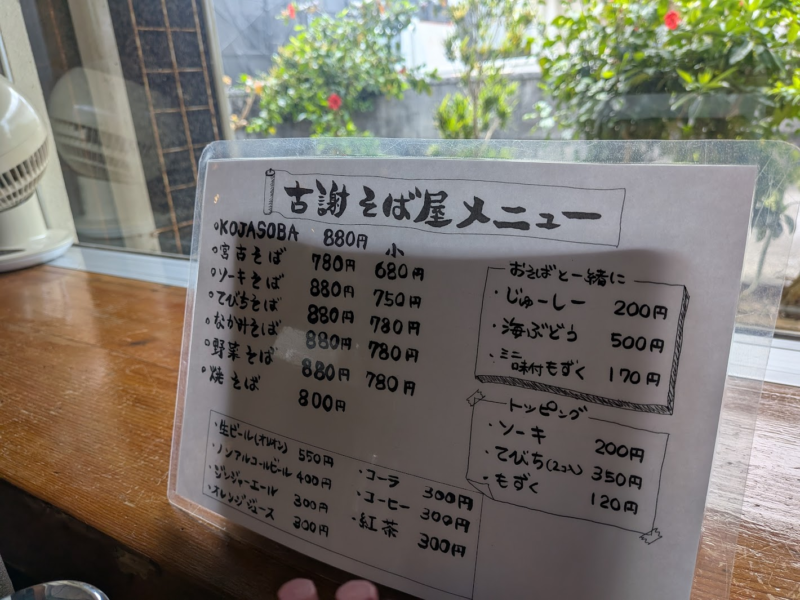 古謝そば屋メニュー
小
°KOJASOBA 880円
°宮古そば 780円 680円
°ソーキそば 880円 750円
°てびちそば 880円 780円
°なかみそば 880円 780円
°野菜そば 880円 780円
°焼そば 800円
おそばと一緒に
・じゅーしー 200円
・海ぶどう 500円
・ミニ味付もずく 170円
トッピング
・ソーキ 200円
・てびち(2コ入) 350円
・もずく 120円
・生ビール(オリオン) 550円
・ノンアルコールビール 400円
・ジンジャーエール 300円
・オレンジジュース 300円
・コーラ 300円
・コーヒー 300円
・紅茶 300円